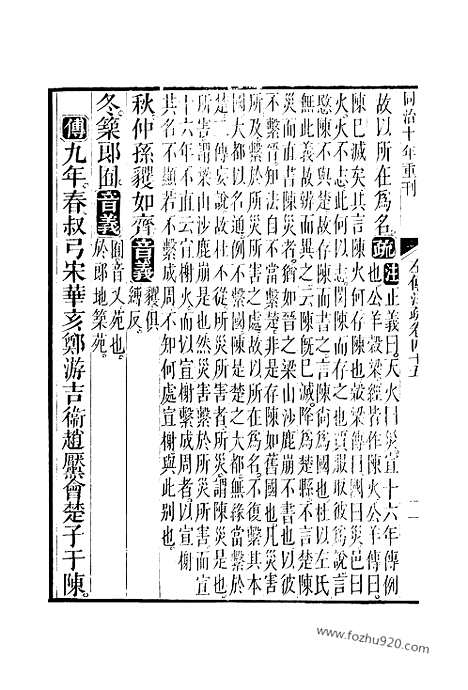 同治十年重刊
左傳注疏卷四十五
二
故以所在爲名。疏注正義曰。天火曰災宣十六年傳例
也公羊穀梁經皆作陳火公羊傳曰
陳已滅矣其言陳火何存陳也穀梁傳曰國曰災邑曰
火火不志此何以志閔陳而存之也賈服取彼爲說言
愍陳不與楚故存陳而書之言陳尚爲國也杜以左氏
無此義故辯而異之云陳旣已滅降爲楚縣不言楚陳
災而直書陳災者猶如晉之梁山沙鹿崩不書也以彼
不繫晉知法自不當繫楚非是存陳如舊國也凡災害
所及繫於所災所害之處故以所在爲名不復繫其本
國大都以名通例不繫國陳是楚之大都無緣當繫
楚二傳妄說故杜不從所災所害者所災謂陳災是也
所害謂梁山沙鹿崩是也然災害繫於所災所害而宣
十六年不直云宣榭火繫成周者以宣榭
其名不顯若不繫成周不知何處宣榭與此別也。
秋仲孫貜如齊音義貜俱
縛反。
冬築郎囿音義囿音又苑也。
於郎地築苑。
傳九年。春叔弓宋華亥鄭游吉衛趙黶會楚子于陳。
www.fozhu920.com